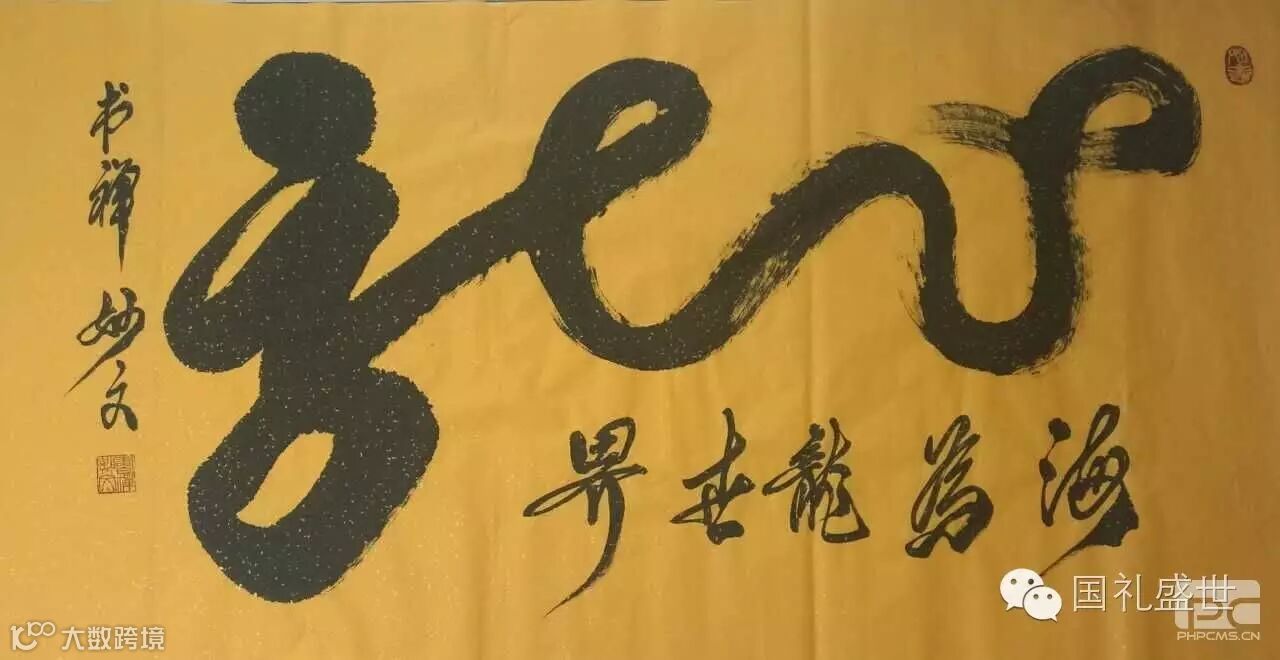 龍
海為龍世界
书禅 妙文
国礼盛世
PHPCMS.CN
大数跨境